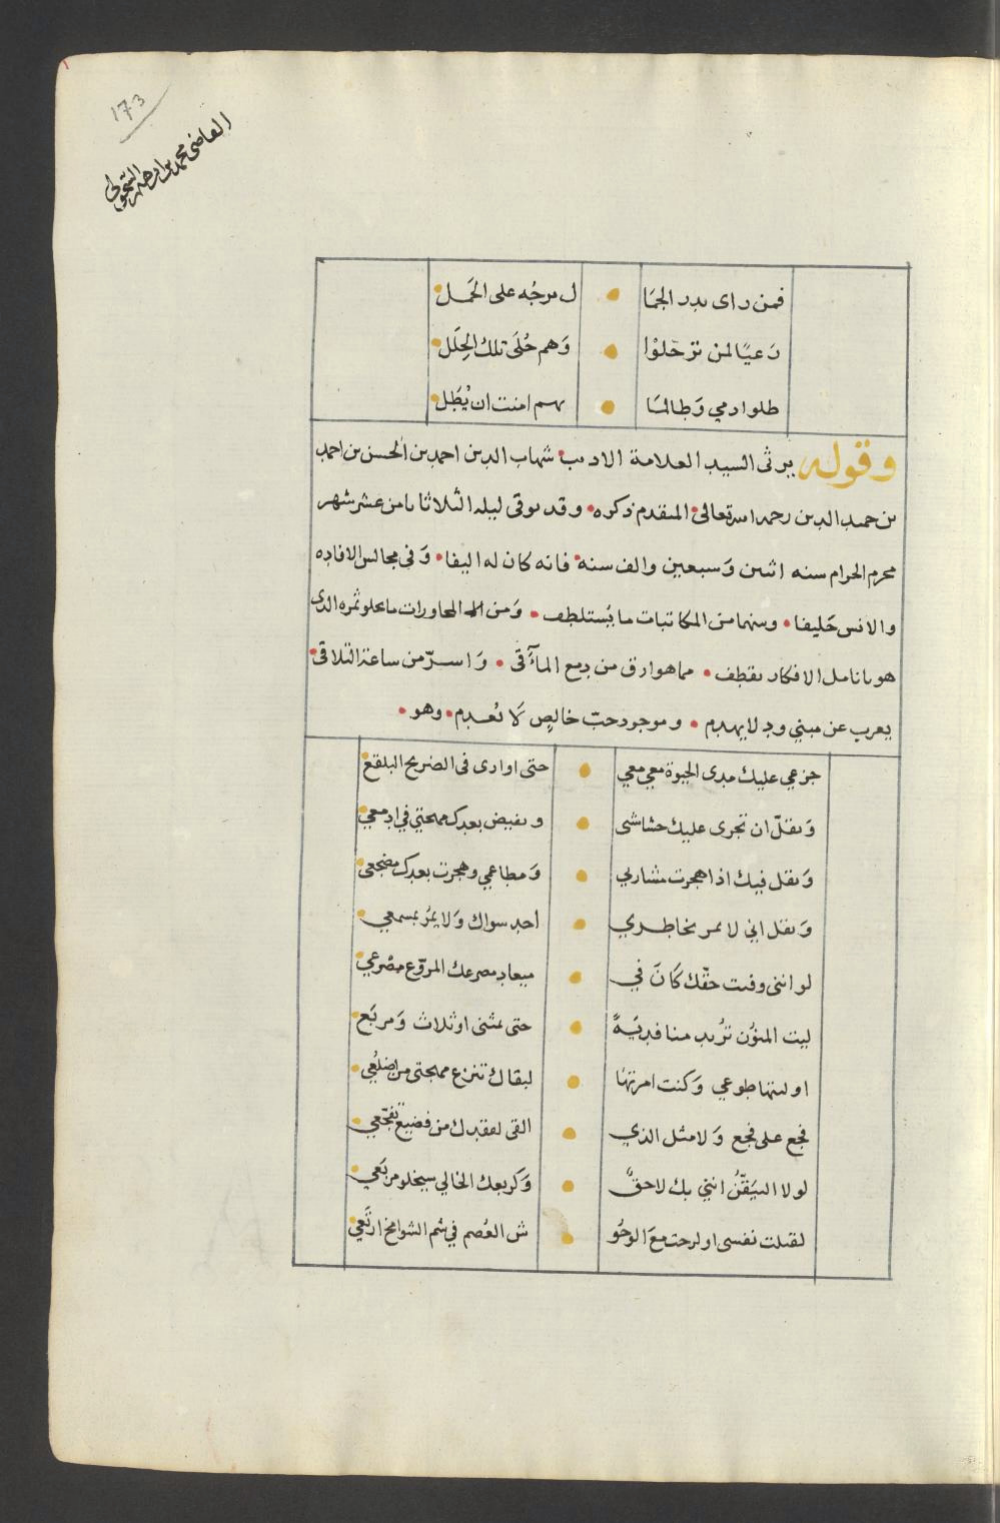 173
القاضي محمد بن ابراهيم السحولي
فمن راى بدر الجمَا ل مرجُه على الحَمَل
رَعيًا لمن ترحّلوْا وَهم حُلَى تلك الحِلَل
طلوا دمي وَطالمَا بهم امنت ان يُطَل
وقوله يرثى السيد العلامة الاديب شهاب الدين احمد بن الحسن بن احمد
بن حميد الدين رحمه الله تعالى المتقدم ذكره وقد توفى ليله الثلاثا ثامن عشر شهر
محرم الحرام سنه اثنين وَسبعين والف سنة فانه كان له اليفا وَفى مجالس الافاده
والانس حَليفا وبينهما من المكاتبات ما يُستلطف وَمن المحاورات ما يحلو ثمره الذى
هو بانامل الافكار يقطف مما هو ارق من دمع المآقى وَاسرّ من ساعة التلاقى
يعرب عن مبني ودٍ لا يهدم وموجود حبّ خالصٍ لَا يُعدم وهو
جزعي عليك مدى الحيوة معي معي حتى اوارى فى الضريح البلقع
وَيقلّ ان تجرى عليك حشاشتى وتفيض بعدك مهجتي في ادمعي
وَيقل فيك اذا هجرت مشاربي وَمطاعمي وهجرت بعدك مضجعى
وَيقل انى لا يمر بخاطري أحد سواك وَلا يمُرّ بمسمعي
لو اننى وفيت حقّك كَانَ في ميعاد مصرعك المروّع مصرعي
ليت المنوُن ترُيد منا فديَةً حتى بمثنى او ثلاث وَمربَع
او ليتها طوعي وَكنت امرتهَا لبقاك تنزع مهجتى من اضلُعي
فجع على فجع وَلا مثل الذي القى لفقدك من فضيع تفجّعي
لولا التيَقّنُ اننى بك لاحقٌ وَكربعك الخالي سيخلو مربَعي
لقتلت نفسى او لرحت معَ الوحُو ش العُصم في شم الشوامخ ارتَعي